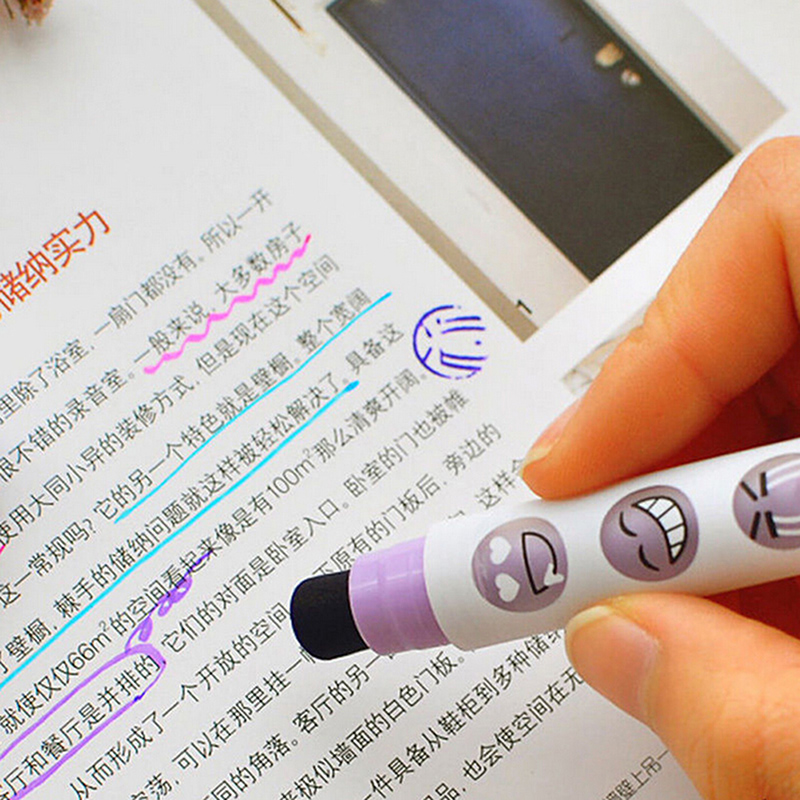 储纳实力
里除了浴室，一扇门都没有。所以一开
很不错的录音室。一般来说，大多数房子
使用大同小异的装修方式，但是现在这个空间
这一常规吗？它的另一个特色就是壁橱。整个宽阔
了壁橱，棘手的储纳问题就这样被轻松解决了。具备这
就使仅仅66m²的空间看起来像是有100m²那么清爽开阔。
客厅和餐厅是并排的，它们的对面是卧室入口。卧室的门也被帷
从而形成了一个开放的空间 原有的门板后，旁边的
空荡，可以在那里挂一 这样
同的角落。客厅的另一
来极似墙面的白色门板。
一件具备从鞋柜到多种储纳
品，也会使空间在无
壁上吊一
1